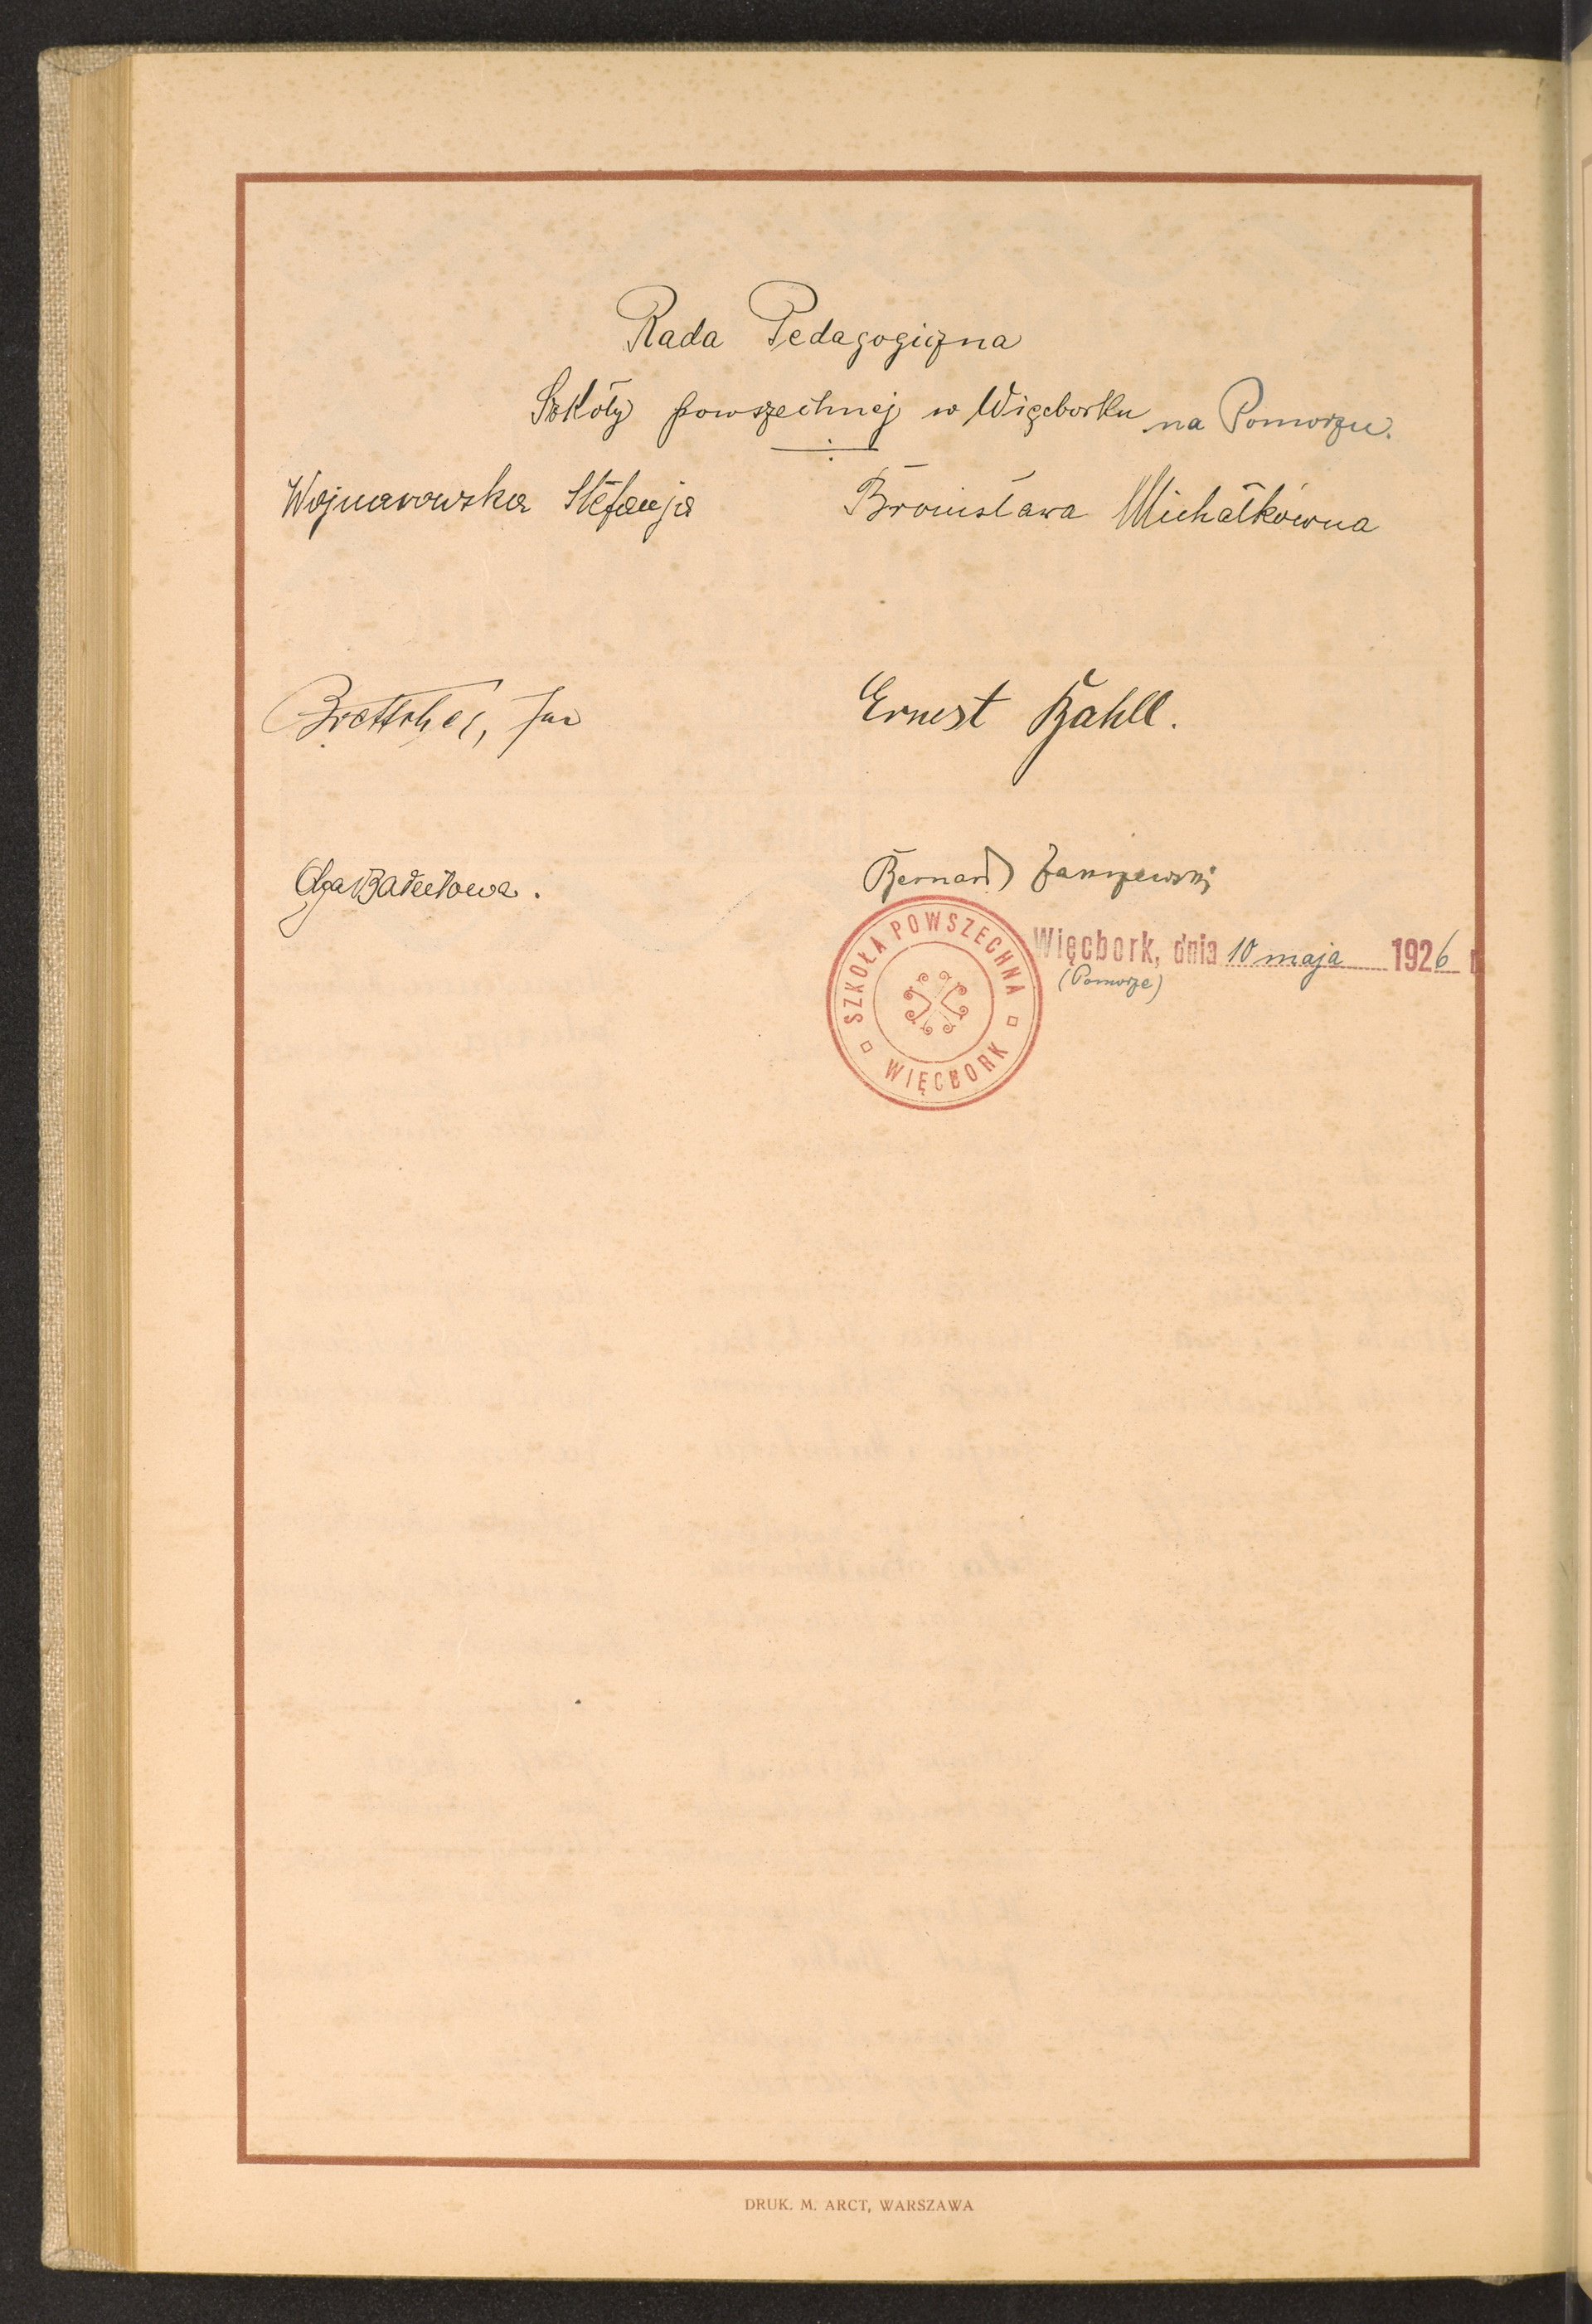 Rada Pedagogiczna
Szkoły powszechnej w Więcborku na Pomorzu.
Wojnarowska Stefanja
Bronisława Michałkówna
Ernest Bahll.
Olga
Bernard
SZKOŁA POWSZECHNA
WIĘCBORK
Więcbork, dnia 10 maja 1926 r
(Pomorze)
DRUK. M. ARCT, WARSZAWA